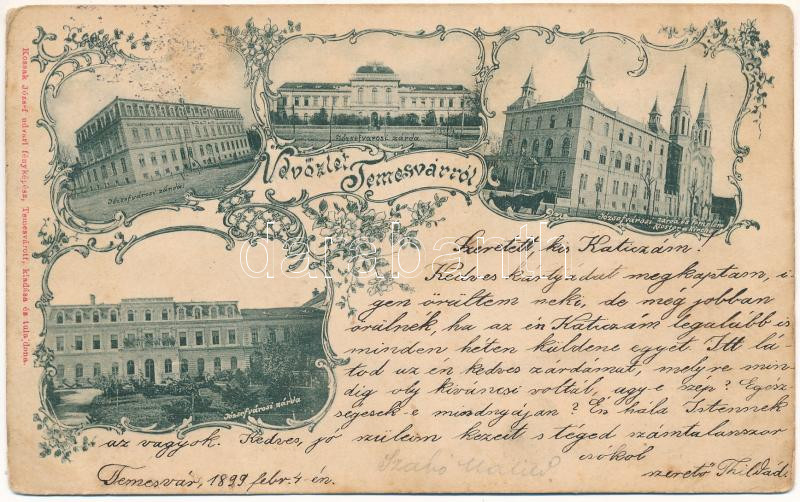 Kossak József udvari fényképész, Temesvárott, kiadása és tulajdona.
Józsefvárosi zárda
Józsefvárosi zárda
Üdvözlet Temesvárról
Józsefvárosi zárda és templom
Kloster u. Kirche
Józsefvárosi zárda
darabanth
Szeretett kis Katiczám!
Kedves kártyádat megkaptam, i-
gen örültem neki, de még jobban
örülnék, ha az én Katiczám legalább is
minden héten küldene egyet. Itt lá-
tod az én kedves zárdámat, melyre min-
dig oly kiváncsi voltál, ugy-e szép? Egész-
ségesek-e mindnyájan? Én hála Istennek
az vagyok. Kedves, jó szüleim kezeit s téged számtalanszor
csókol
Temesvár, 1899 febr. 4-én. szerető Thildád.
Szabó